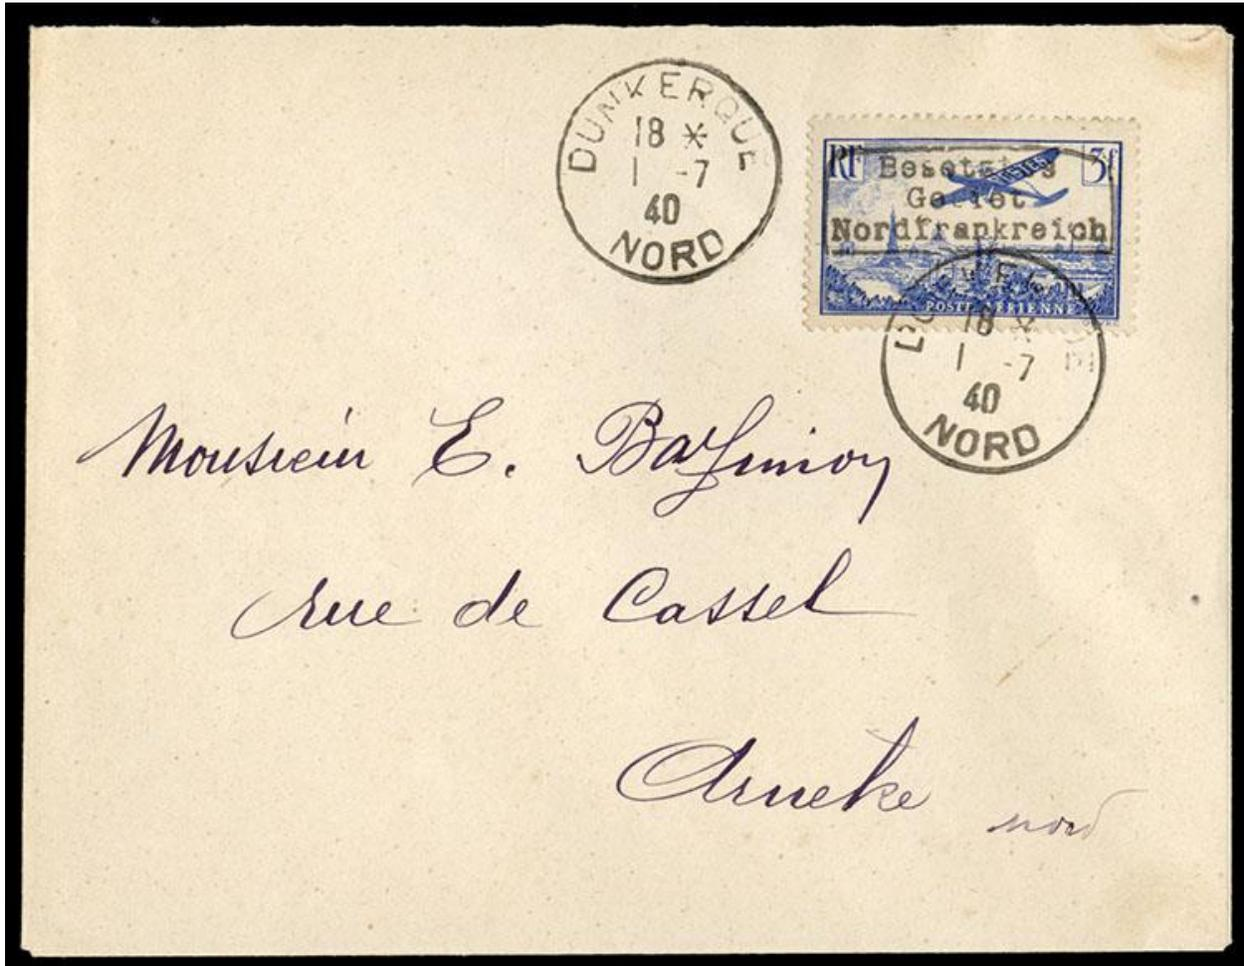 DUNKERQUE
18 *
1 -7
40
NORD
RF 3f
POSTES
Besetztes
Gebiet
Nordfrankreich
POSTE AÉRIENNE
DUNKERQUE
18 *
1 -7
40
NORD
Monsieur E.
rue de Cassel
Arneke
nord